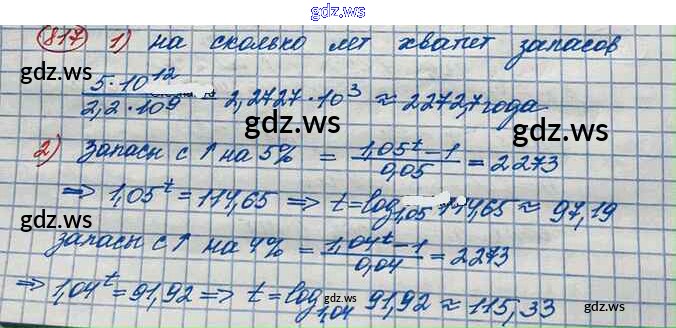 gdz.ws
817 1) на сколько лет хватит запасов
gdz.ws gdz.ws
5·10¹² / 2,2·10⁹ = 2,2727·10³ ≈ 2272,7 года
gdz.ws
2) запасы с ↑ на 5% = (1,05ᵗ−1) / 0,05 = 2273
⇒ 1,05ᵗ = 114,65 ⇒ t = log₁,₀₅ 114,65 ≈ 97,19
gdz.ws gdz.ws
запасы с ↑ на 4% = (1,04ᵗ−1) / 0,04 = 2273
⇒ 1,04ᵗ = 91,92 ⇒ t = log₁,₀₄ 91,92 ≈ 115,33
gdz.ws gdz.ws